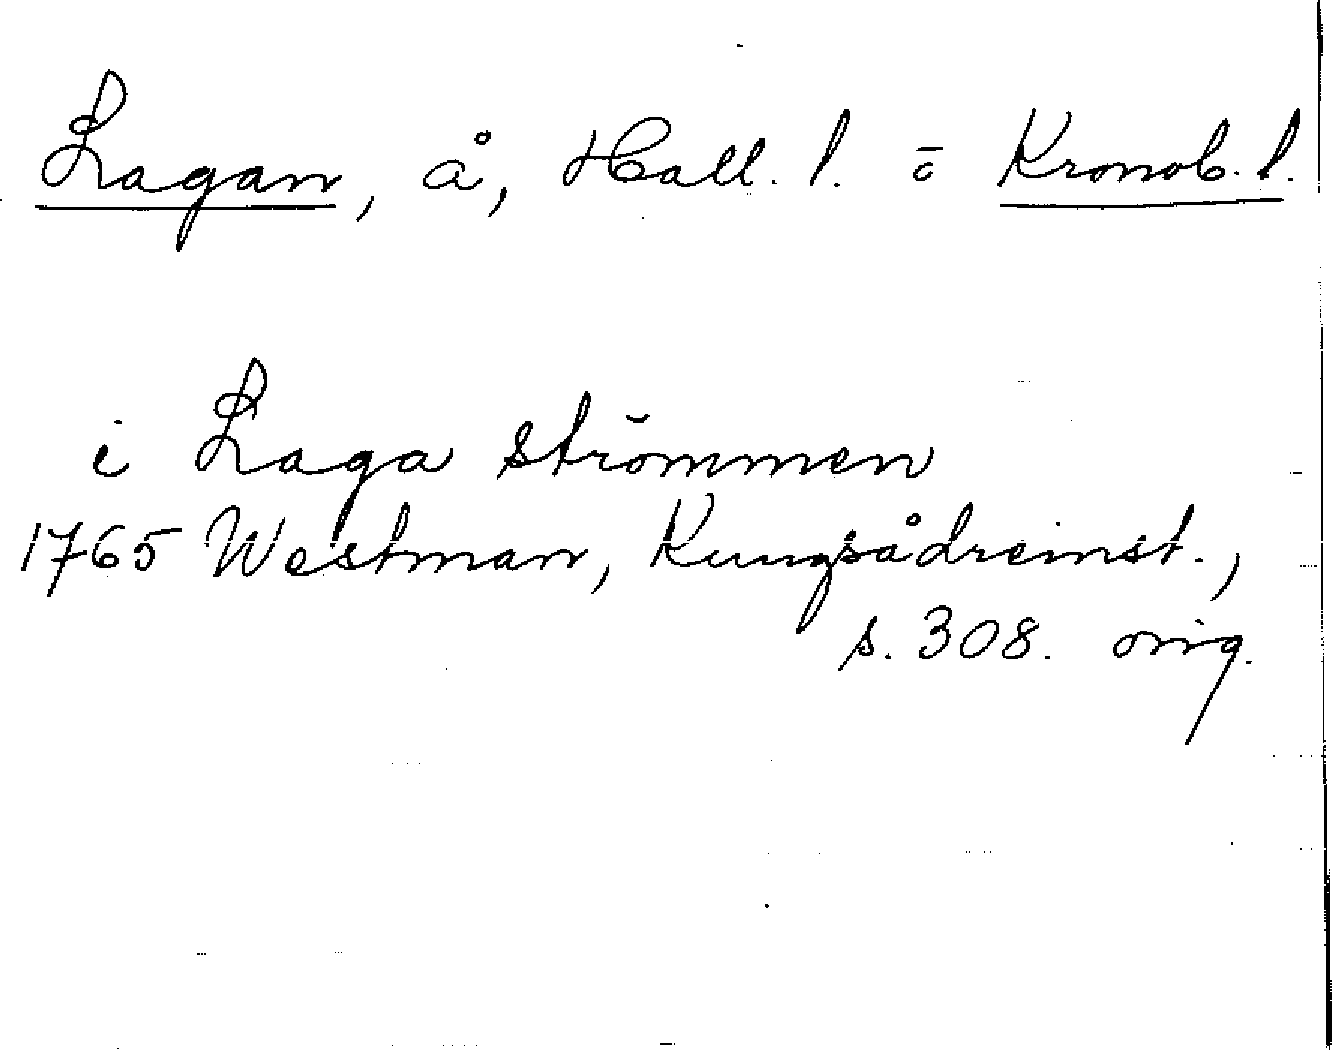 Lagan, å, Hall. l. o Kronob. l.
i Laga strömmen
1765 Westman, Kungsådreinst.,
s. 308. orig.